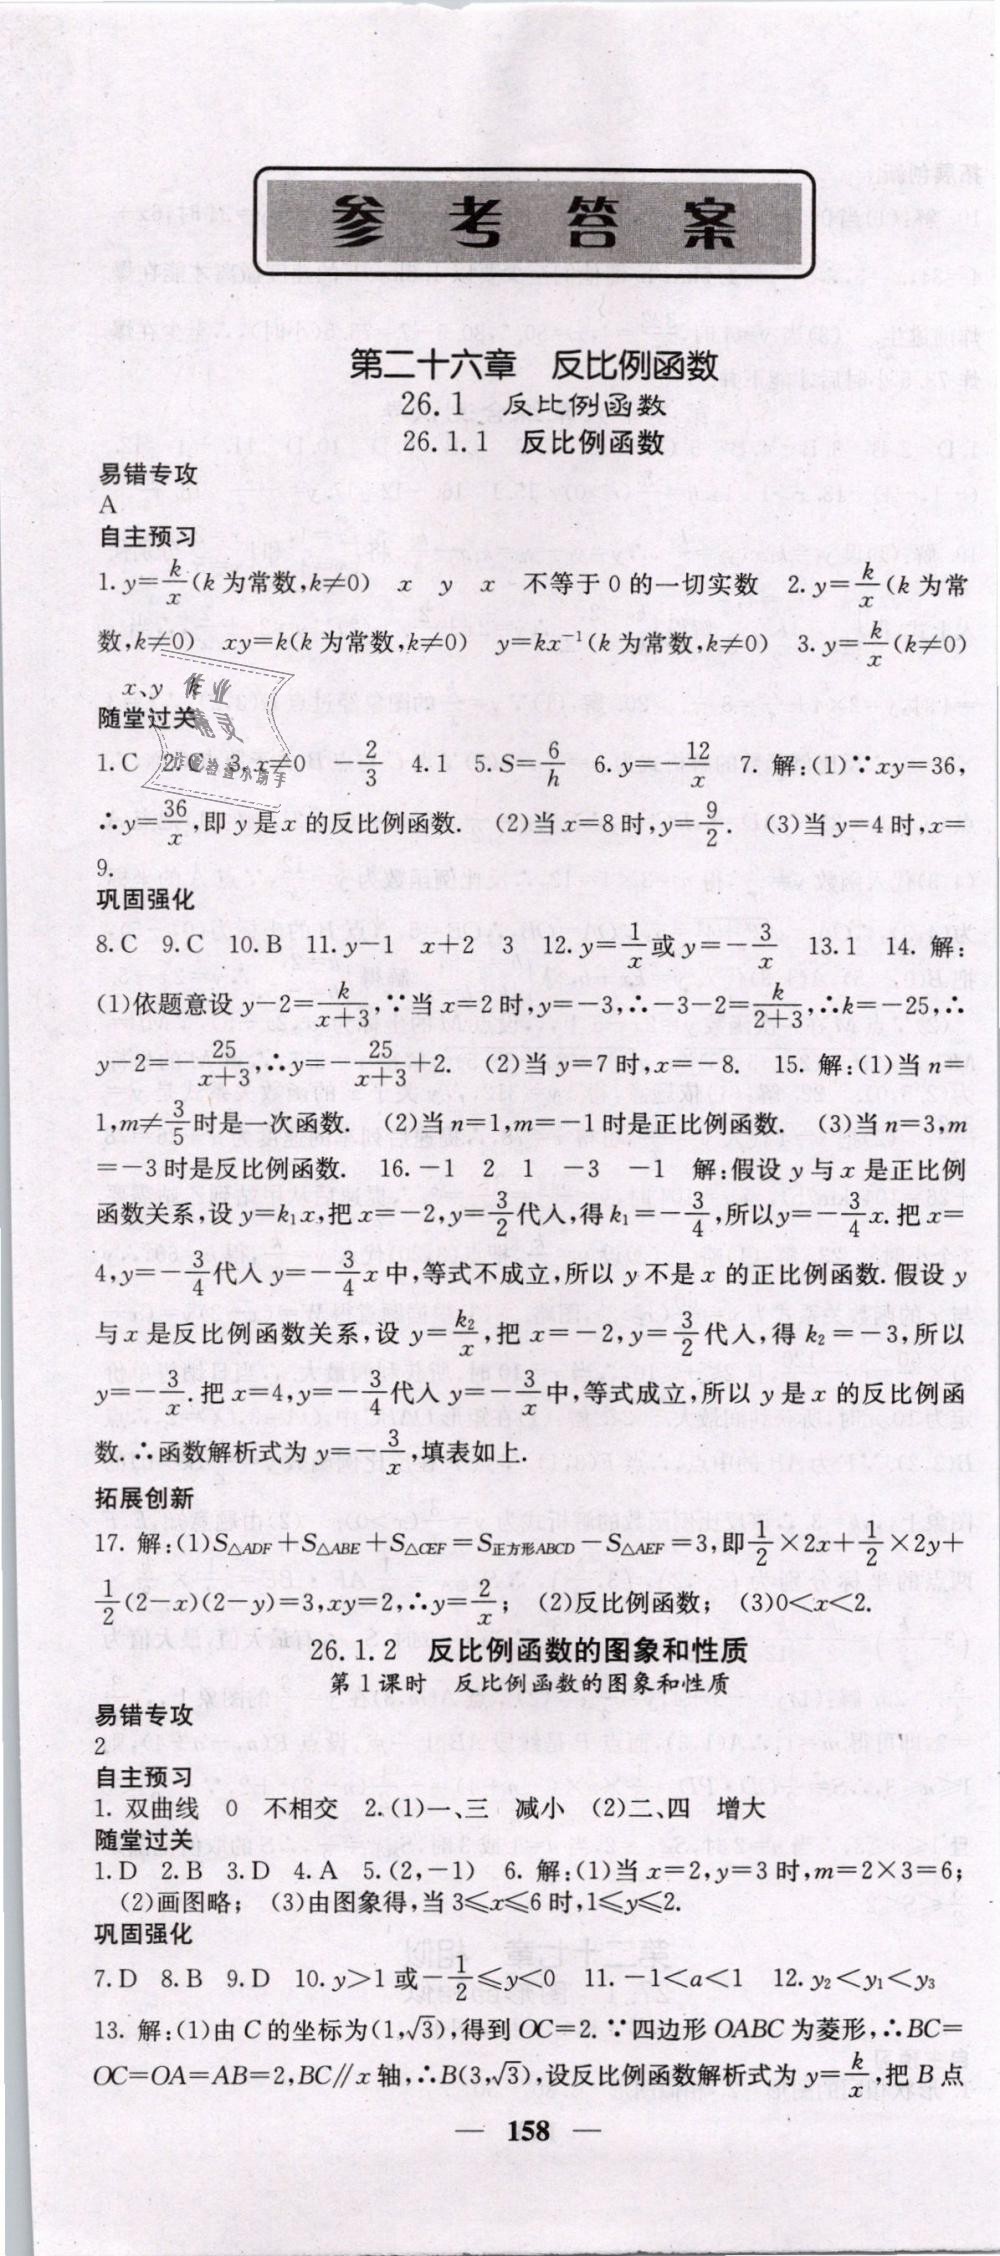 参考答案
第二十六章 反比例函数
26.1 反比例函数
26.1.1 反比例函数
易错专攻
A
自主预习
1. y=k/x(k 为常数,k≠0) x y x 不等于 0 的一切实数 2. y=k/x(k 为常
数,k≠0) xy=k(k 为常数,k≠0) y=kx⁻¹(k 为常数,k≠0) 3. y=k/x(k≠0)
x、y
随堂过关
1. C 2. C 3. x≠0 -2/3 4. 1 5. S=6/h 6. y=-12/x 7. 解:(1)∵xy=36,
∴y=36/x,即 y 是 x 的反比例函数. (2)当 x=8 时,y=9/2. (3)当 y=4 时,x=
9.
巩固强化
8. C 9. C 10. B 11. y-1 x+2 3 12. y=1/x或 y=-3/x 13. 1 14. 解:
(1)依题意设 y-2=k/(x+3),∵当 x=2 时,y=-3,∴-3-2=k/(2+3),∴k=-25,∴
y-2=-25/(x+3),∴y=-25/(x+3)+2. (2)当 y=7 时,x=-8. 15. 解:(1)当 n=
1,m≠3/5时是一次函数. (2)当 n=1,m=-1 时是正比例函数. (3)当 n=3,m
=-3 时是反比例函数. 16. -1 2 1 -3 -1 解:假设 y 与 x 是正比例
函数关系,设 y=k₁x,把 x=-2,y=3/2代入,得 k₁=-3/4,所以y=-3/4x. 把 x=
4,y=-3/4代入 y=-3/4x 中,等式不成立,所以 y 不是 x 的正比例函数. 假设 y
与 x 是反比例函数关系,设 y=k₂/x,把 x=-2,y=3/2代入,得 k₂=-3,所以
y=-3/x. 把 x=4,y=-3/4代入 y=-3/x中,等式成立,所以 y 是 x 的反比例函
数. ∴函数解析式为 y=-3/x,填表如上.
拓展创新
17. 解:(1)S△ADF+S△ABE+S△CEF=S正方形ABCD-S△AEF=3,即1/2×2x+1/2×2y+
1/2(2-x)(2-y)=3,xy=2,∴y=2/x; (2)反比例函数; (3)0<x<2.
26.1.2 反比例函数的图象和性质
第 1 课时 反比例函数的图象和性质
易错专攻
2
自主预习
1. 双曲线 0 不相交 2. (1)一、三 减小 (2)二、四 增大
随堂过关
1. D 2. B 3. D 4. A 5. (2,-1) 6. 解:(1)当 x=2,y=3 时,m=2×3=6;
(2)画图略; (3)由图象得,当 3≤x≤6 时,1≤y≤2.
巩固强化
7. D 8. B 9. D 10. y>1 或-1/2≤y<0 11. -1<a<1 12. y₂<y₁<y₃
13. 解:(1)由 C 的坐标为(1,√3),得到 OC=2. ∵四边形 OABC 为菱形,∴BC=
OC=OA=AB=2,BC∥x 轴,∴B(3,√3),设反比例函数解析式为 y=k/x,把 B 点
— 158 —
作业
精灵
作业检查小助手